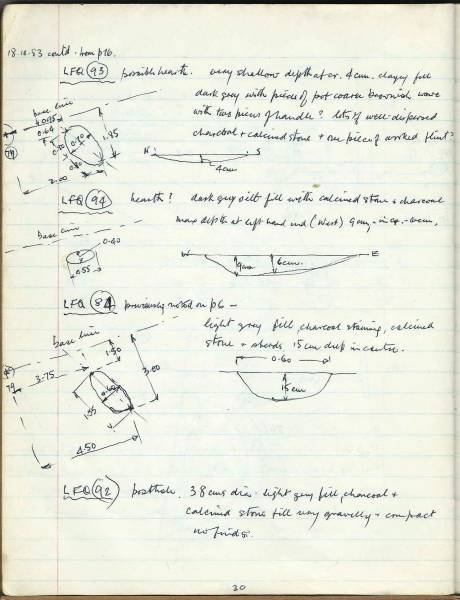 18.10.83 contd. from p16.
LFQ 93 possible hearth. very shallow depth at cr. 4cm. clayey fill
dark grey with pieces of pot coarse brownish ware
with two pieces of handle? lots of well-dispersed
charcoal + calcined stone + one piece of worked flint?
base line
0.64
1.35
2.00
N S
4cm
LFQ 94 hearth? dark grey silt fill with calcined stone + charcoal
max depth at left hand end (West) 9cm -
base line
0.40
0.55
W E
9cm 6cm.
LFQ 84 previously noted on p6 -
light grey fill, charcoal staining, calcined
stone + sherds, 15cm deep in centre.
base line
1.50
3.75
3.00
79
0.60
1.55
4.50
0.60
15cm
LFQ 92 posthole. 38cms dia. light grey fill, charcoal +
calcined stone fill very gravelly - compact
no finds.
30